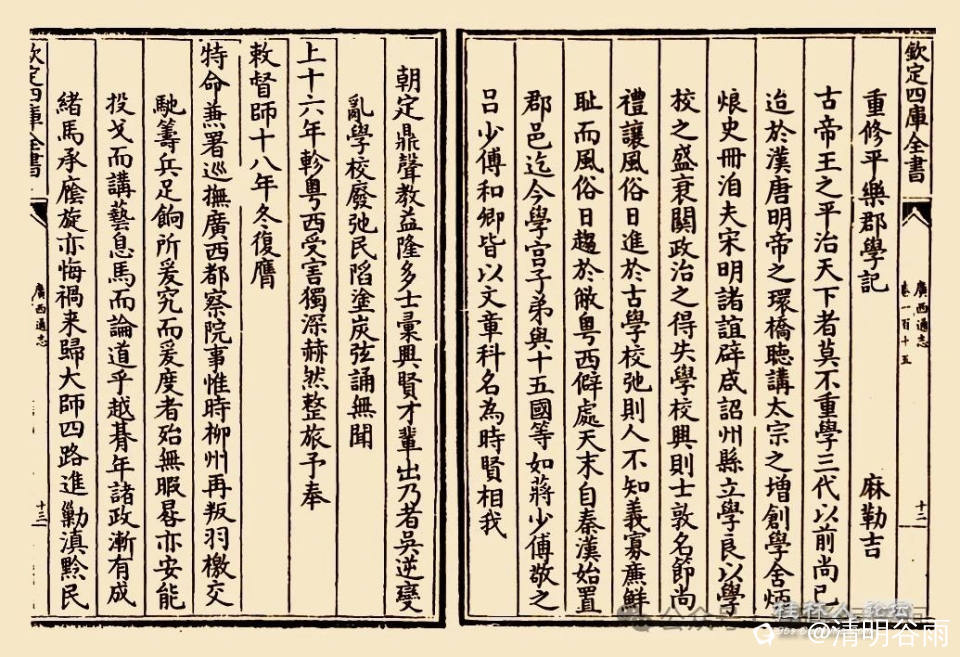 欽定四庫全書
廣西通志
卷一百十五
十二
重修平樂郡學記
麻勒吉
古帝王之平治天下者莫不重學三代以前尚已
迨於漢唐明帝之環橋聽講太宗之增創學舍炳
烺史冊洎夫宋明諸誼辟咸詔州縣立學良以學
校之盛衰闗政治之得失學校興則士敦名節尚
禮讓風俗日進於古學校弛則人不知義寡亷鮮
耻而風俗日趨於敝粤西僻處天末自秦漢始置
郡邑迄今學宫子弟與十五國等如蔣少傅敬之
吕少傅和卿皆以文章科名為時賢相我
朝定鼎聲教益隆多士彚興賢才輩出乃者吳逆變
亂學校廢弛民䧟塗炭弦誦無聞
上十六年軫粤西受害獨深赫然整旅予奉
敕督師十八年冬復膺
特命兼署巡撫廣西都察院事惟時柳州再叛羽檄交
馳籌兵足餉所爰究而爰度者殆無暇晷亦安能
投戈而講藝息馬而論道乎越朞年諸政漸有成
緒馬承廕旋亦悔禍来歸大師四路進勦滇黔民
欽定四庫全書
廣西通志
十三
公众号
桂林人论坛
@清明谷雨